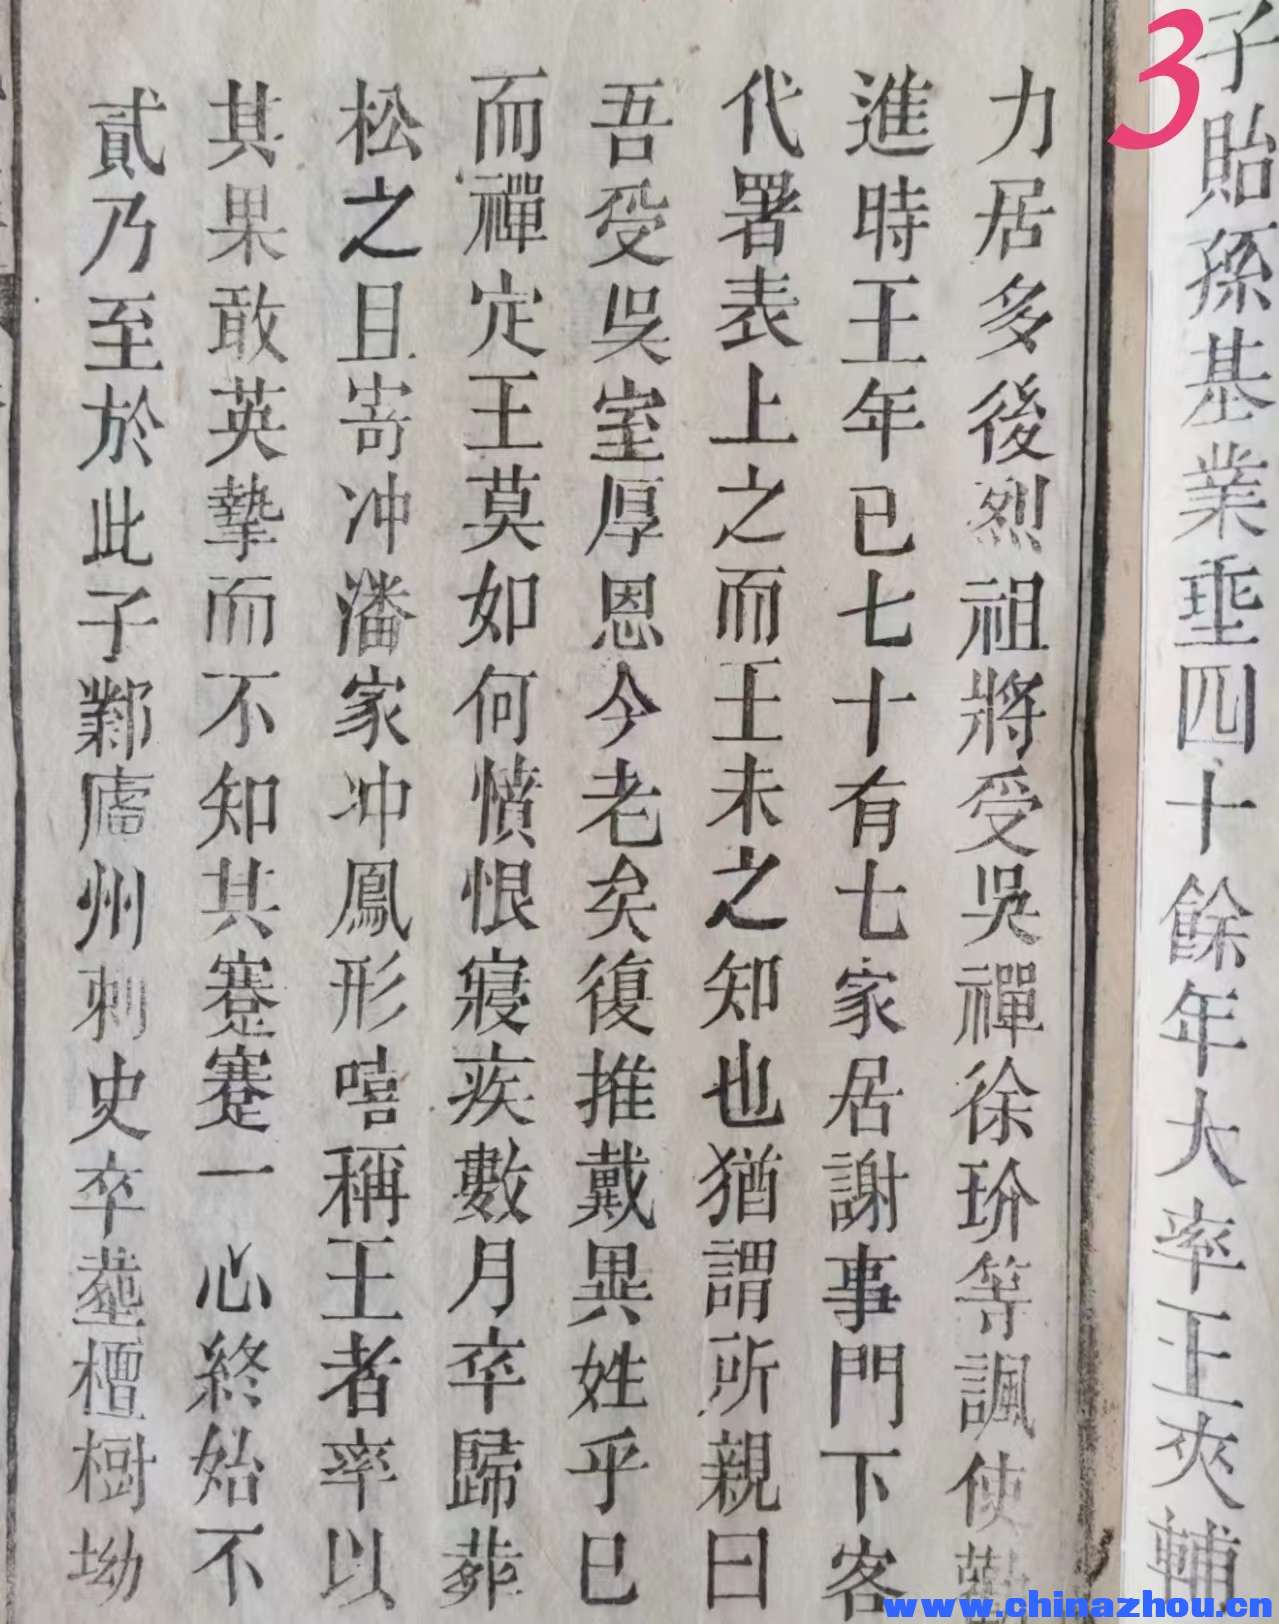 3
子貽孫基業垂四十餘年大率王夾輔
力居多後烈祖將受吳禪徐玠等諷使勸
進時王年已七十有七家居謝事門下客
代署表上之而王未之知也猶謂所親曰
吾受吳室厚恩今老矣復推戴異姓乎已
而禪定王莫如何憤恨寢疾數月卒歸葬
松之且嵜冲潘家冲鳳形嘻稱王者率以
其果敢英摯而不知其蹇蹇一心終始不
貳乃至於此子鄴廬州刺史卒塟檀樹坳
www.chinazhou.cn